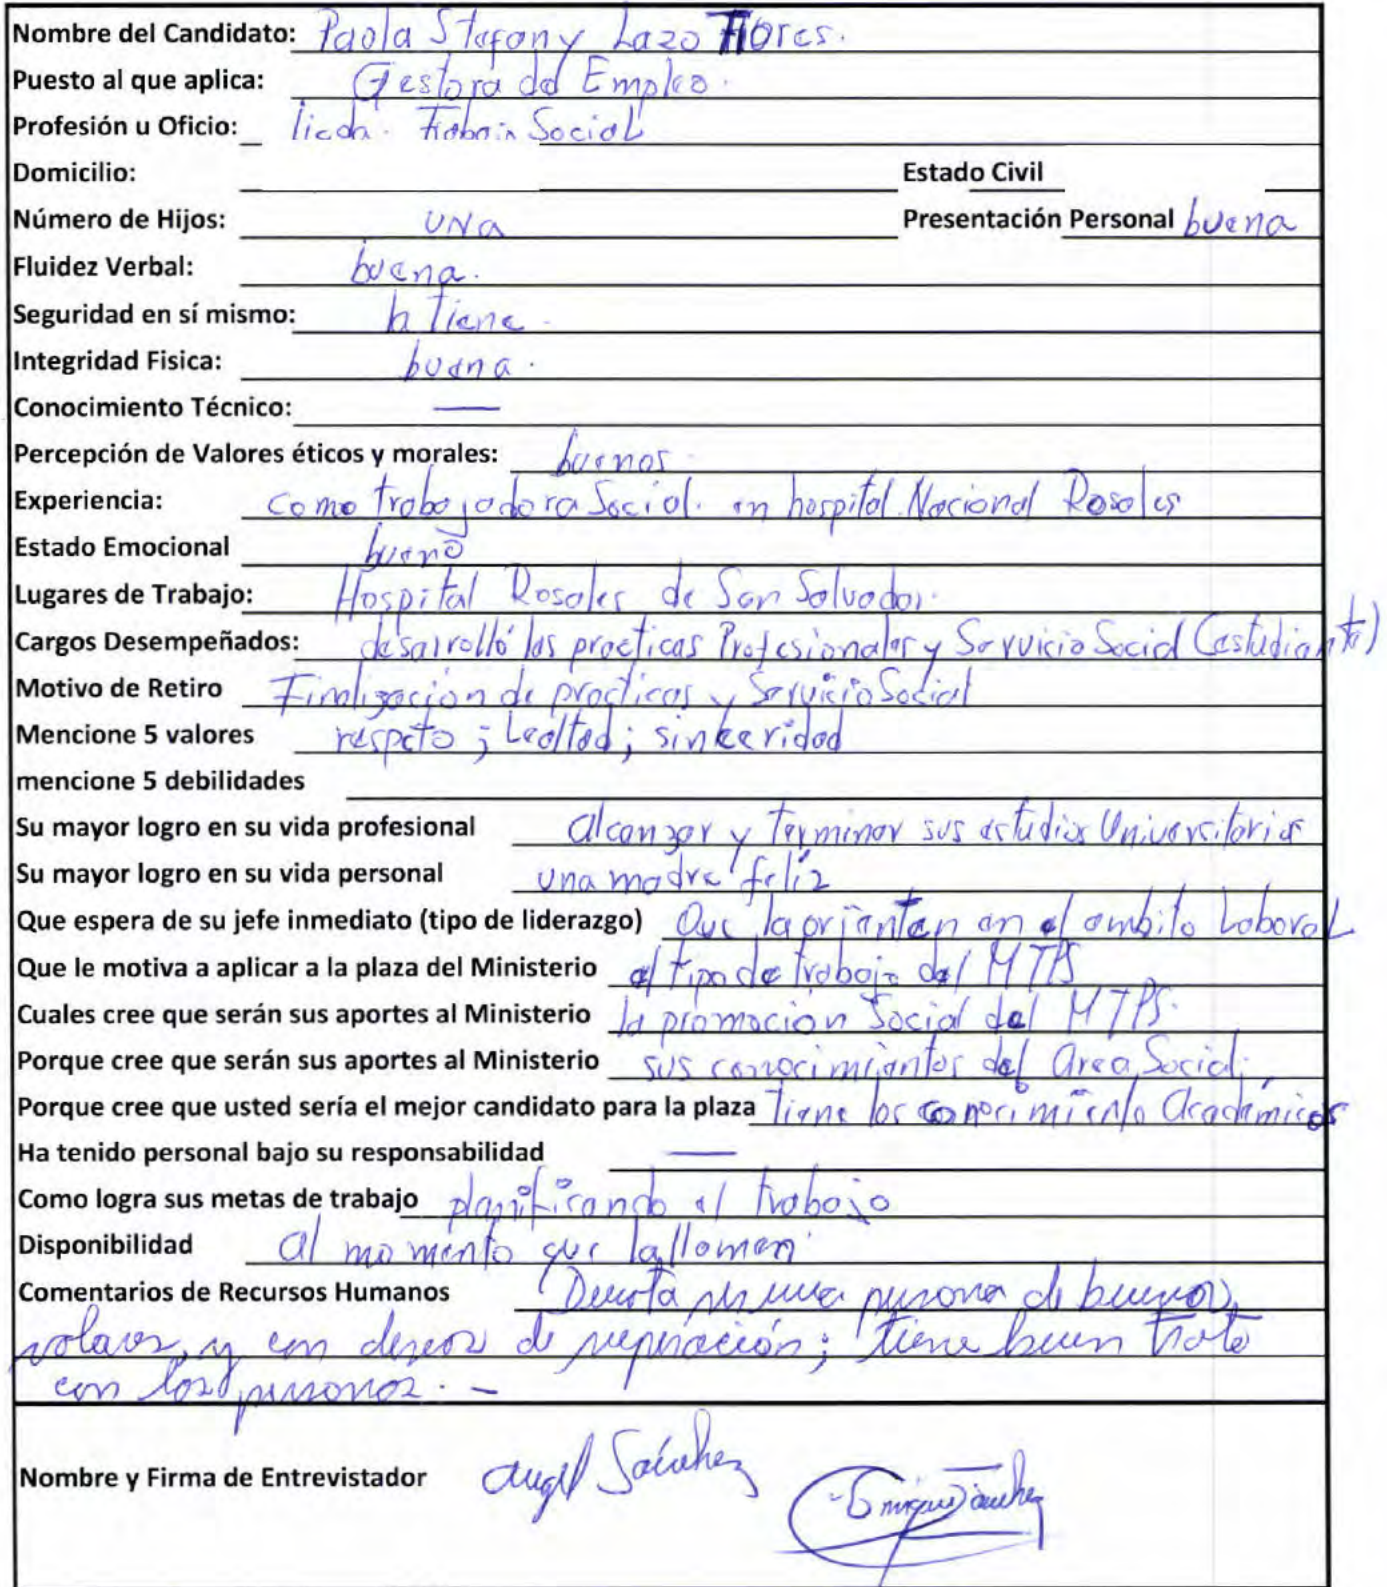 Nombre del Candidato: Paola Stefany Lazo Flores.
Puesto al que aplica: Gestora del Empleo.
Profesión u Oficio: licda. Trabajo Social
Domicilio: Estado Civil
Número de Hijos: UNA Presentación Personal buena
Fluidez Verbal: buena.
Seguridad en sí mismo: la Tiene.
Integridad Fisica: buena.
Conocimiento Técnico: —
Percepción de Valores éticos y morales: buenos.
Experiencia: como trabajadora Social. en hospital Nacional Rosales
Estado Emocional bueno
Lugares de Trabajo: Hospital Rosales de San Salvador.
Cargos Desempeñados: desarrolló las practicas Profesionales y Servicio Social (estudiante)
Motivo de Retiro Finalización de practicas y Servicio Social
Mencione 5 valores respeto; Lealtad; sinceridad
mencione 5 debilidades
Su mayor logro en su vida profesional alcanzar y Terminar sus estudios Universitarios
Su mayor logro en su vida personal una madre feliz
Que espera de su jefe inmediato (tipo de liderazgo) Que la orienten en el ambito Laboral
Que le motiva a aplicar a la plaza del Ministerio el tipo de trabajo del MTPS
Cuales cree que serán sus aportes al Ministerio la promoción Social del MTPS.
Porque cree que serán sus aportes al Ministerio sus conocimientos del area Social.
Porque cree que usted sería el mejor candidato para la plaza Tiene los conocimiento Académicos
Ha tenido personal bajo su responsabilidad —
Como logra sus metas de trabajo planificando el trabajo
Disponibilidad al momento que la llamen
Comentarios de Recursos Humanos Denota ser una persona de buenos
valores, y con deseos de superación; tiene buen trato
con las personas. -
Nombre y Firma de Entrevistador Angel Sánchez
Enrique Sánchez